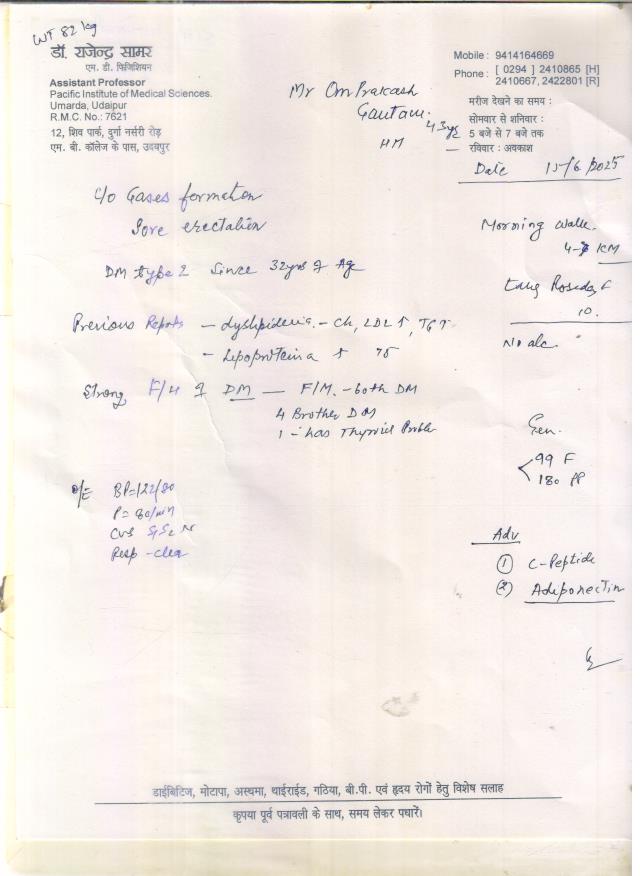 WT 82 kg
डॉ. राजेन्द्र सामर
एम. डी. फिजिशियन
Assistant Professor
Pacific Institute of Medical Sciences.
Umarda, Udaipur
R.M.C. No.: 7621
12, शिव पार्क, दुर्गा नर्सरी रोड़
एम. बी. कॉलेज के पास, उदयपुर
Mobile : 9414164669
Phone : [ 0294 ] 2410865 [H]
2410667, 2422801 [R]
मरीज देखने का समय :
सोमवार से शनिवार :
5 बजे से 7 बजे तक
रविवार : अवकाश
Mr Om Prakash
Gautam.
43 yrs
HM
Date 15/6/2025
C/o Gases formation
Sore erectation
DM type 2 Since 32yrs of Age
Previous Reports - dyslipidemia - Ch, LDL↑, TG↑
- Lipoprotein a ↑ 75
Strong F/H of DM — F/M. - both DM
4 Brother DM
1 - has Thyroid Proble
O/E BP=122/80
P= 80/min
CVS S1S2 N
Resp - clear
Morning Walk.
4- KM
10.
No alc.
Gen.
99 F
180 PP
Adv
① C-Peptide
② Adiponectin
डाईबिटिज, मोटापा, अस्थमा, थाईराईड, गठिया, बी.पी. एवं हृदय रोगों हेतु विशेष सलाह
कृपया पूर्व पत्रावली के साथ, समय लेकर पधारें।